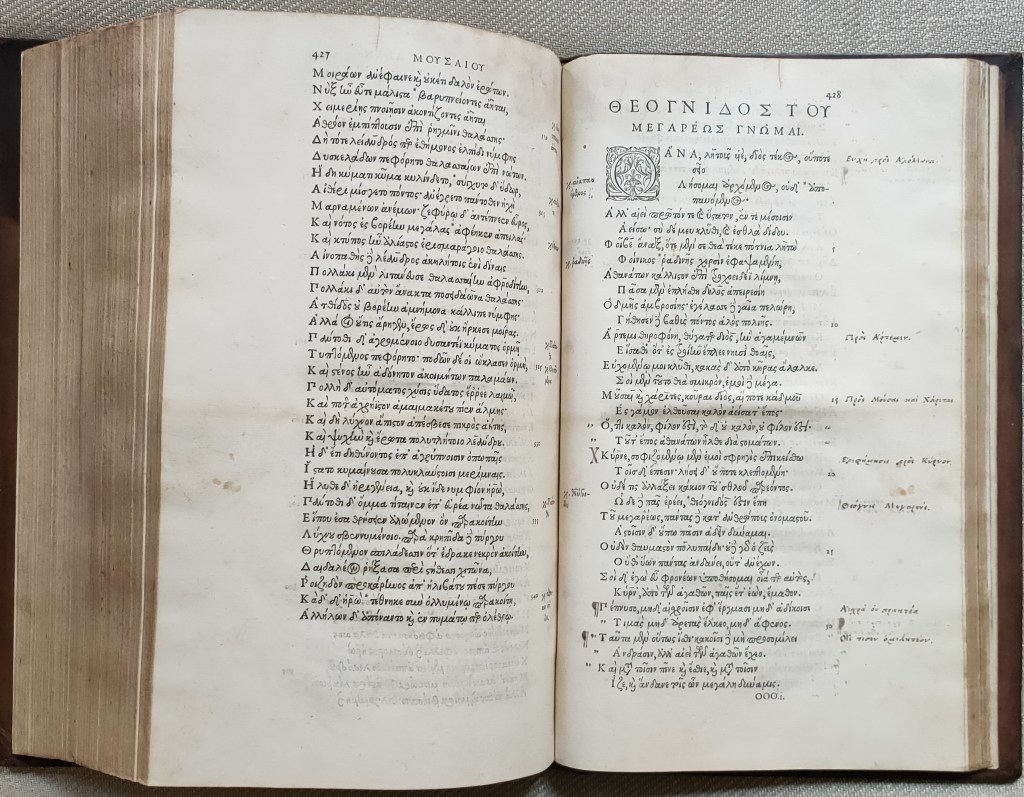 427
ΜΟΥΣΑΙΟΥ
Μοιράων ἀνέφαινε καὶ οὐκέτι δαλὸν ἐρώτων.
Νὺξ ἦν εὖτε μάλιστα βαρυπνείοντες ἀῆται,
Χειμερίης πνοιῇσιν ἀκοντίζοντες ἀῆται,
Ἀθρόον ἐμπίπτουσιν ἐπὶ ῥηγμῖνι θαλάσσης·
Δὴ τότε Λείανδρός περ ἐθήμονος ἐλπίδι νύμφης
Δυσκελάδων πεφόρητο θαλασσαίων ἐπὶ νώτων.
Ἤδη κύματι κῦμα κυλίνδετο, σύγχυτο δ' ὕδωρ,
Αἰθέρι μίσγετο πόντος· ἀνέγρετο πάντοθεν ἠχὴ
Μαρναμένων ἀνέμων· ζεφύρῳ δ' ἀντέπνεεν εὖρος,
Καὶ νότος ἐς βορέην μεγάλας ἀφέηκεν ἀπειλάς·
Καὶ κτύπος ἦν ἀλίαστος ἐρισμαράγοιο θαλάσσης.
Αἰνοπαθὴς δὲ Λέανδρος ἀκηλήτοις ἐνὶ δίναις
Πολλάκι μὲν λιτάνευσε θαλασσαίην ἀφροδίτην,
Πολλάκι δ' αὐτὸν ἄνακτα ποσειδάωνα θαλάσσης·
Ἀτθίδος οὐ βορέην ἀμνήμονα κάλλιπε νύμφης·
Ἀλλά οἱ οὔτις ἄρηγεν, ἔρως δ' οὐκ ἤρκεσε μοίρας.
Πάντοθι δ' ἀγρομένοιο δυσαντέϊ κύματος ὁρμῇ
Τυπτόμενος πεφόρητο· ποδῶν δέ οἱ ὤκλασεν ὁρμὴ,
Καὶ σθένος ἦν ἀδόνητον ἀκοιμήτων παλαμάων.
Πολλὴ δ' αὐτόματος χύσις ὕδατος ἔρρεε λαιμῷ,
Καὶ ποτὸν ἀχρήϊστον ἀμαιμακέτου πίεν ἅλμης·
Καὶ δὴ λύχνον ἄπιστον ἀπέσβεσε πικρὸς ἀήτης,
Καὶ ψυχὴν καὶ ἔρωτα πολυτλήτοιο Λεάνδρου.
Ἡ δ' ἔτι δηθύνοντος ἐπ' ἀγρύπνοισιν ὀπωπαῖς
Ἵστατο κυμαίνουσα πολυκλαύστοισι μερίμναις.
Ἤλυθε δ' ἠριγένεια, καὶ οὐκ ἴδε νυμφίον ἡρώ,
Πάντοθι δ' ὄμμα τίταινεν ἐπ' εὐρέα νῶτα θαλάσσης,
Εἴπου ἐσαθρήσειεν ἀλωόμενον ὃν παρακοίτην
Λύχνου σβεννυμένοιο. παρὰ κρηπῖδα δὲ πύργου
Θρυπτόμενον σπιλάδεσσιν ὅτ' ἔδρακε νεκρὸν ἀκοίτην,
Δαιδαλέον ῥήξασα περὶ στήθεσσι χιτῶνα,
Ῥοιζηδὸν προκάρηνος ἀπ' ἠλιβάτου πέσε πύργου
Καδδ' ἡρὼ τέθνηκε σὺν ὀλλυμένῳ παρακοίτῃ,
Ἀλλήλων δ' ἀπόναντο καὶ ἐν πυμάτῳ περ ὀλέθρῳ.
428
ΘΕΟΓΝΙΔΟΣ ΤΟΥ
ΜΕΓΑΡΕΩΣ ΓΝΩΜΑΙ.
Ὦ ΑΝΑ, λητοῦς υἱέ, διὸς τέκος, οὔποτε
σεῖο
Λήσομαι ἀρχόμενος, οὐδ' ἀποπαυόμενος.
Ἀλλ' αἰεὶ πρῶτόν τε καὶ ὕστατον, ἔν τε μέσοισιν
Ἀείσω· σὺ δέ μευ κλῦθι, καὶ ἐσθλὰ δίδου.
Φοῖβε ἄναξ, ὅτε μέν σε θεὰ τέκε πότνια λητὼ 5
Φοίνικος ῥαδινῆς χερσὶν ἐφαψαμένη,
Ἀθανάτων κάλλιστον ἐπὶ τροχοειδέϊ λίμνῃ,
Πᾶσα μὲν ἐπλήσθη δῆλος ἀπειρεσίη
Ὀδμῆς ἀμβροσίης· ἐγέλασσε δὲ γαῖα πελώρη,
Γήθησεν δὲ βαθὺς πόντος ἁλὸς πολιῆς. 10
Ἄρτεμι θηροφόνη, θύγατερ διὸς, ἣν ἀγαμέμνων
Εἵσαθ' ὅτ' ἐς τροίην ἔπλεε νηυσὶ θοαῖς,
Εὐχομένῳ μοι κλῦθι, κακὰς δ' ἀπὸ κῆρας ἄλαλκε.
Σοὶ μὲν τοῦτο θεὰ σμικρὸν, ἐμοὶ δὲ μέγα.
Μοῦσαι καὶ χάριτες, κοῦραι διὸς, αἵ ποτε κάδμου 15
Ἐς γάμον ἐλθοῦσαι καλὸν ἀείσατ' ἔπος·
" Ὅ, ττι καλὸν, φίλον ἐστί, τὸ δ' οὐ καλὸν, οὐ φίλον ἐστί·
" Τοῦτ' ἔπος ἀθανάτων ἦλθε διὰ στομάτων.
Κύρνε, σοφιζομένῳ μὲν ἐμοὶ σφρηγὶς ἐπικείσθω
Τοῖσδ' ἔπεσιν· λήσει δ' οὔποτε κλεπτόμενα· 20
Οὐδέ τις ἀλλάξει κάκιον τοὐσθλοῦ παρεόντος.
Ὧδε δὲ πᾶς ἐρέει, θεόγνιδός ἐστιν ἔπη
Τοῦ μεγαρέως, πάντας δὲ κατ' ἀνθρώπους ὀνομαστοῦ.
Ἀστοῖσιν δ' οὔπω πᾶσιν ἁδεῖν δύναμαι.
Οὐδὲν θαυμαστὸν πολυπαΐδη· οὐδὲ γὰρ ὁ ζεὺς 25
Οὔθ' ὕων πάντας ἁνδάνει, οὔτ' ἀνέχων.
Σοὶ δ' ἐγὼ εὖ φρονέων ὑποθήσομαι οἷά περ αὐτὸς,
Κύρν', ἀπὸ τῶν ἀγαθῶν, παῖς ἔτ' ἐὼν, ἔμαθον.
Πέπνυσο, μηδ' αἰσχροῖσιν ἐπ' ἔργμασι μηδ' ἀδίκοισι
" Τιμὰς μηδ' ἀρετὰς ἕλκεο, μηδ' ἄφενος. 30
" Ταῦτα μὲν οὕτως ἴσθι· κακοῖσι δὲ μὴ προσομίλει
" Ἀνδράσιν, ἀλλ' αἰεὶ τῶν ἀγαθῶν ἔχεο.
" Καὶ μετὰ τοῖσιν πῖνε καὶ ἔσθιε, καὶ μετὰ τοῖσιν
Ἵζε, καὶ ἅνδανε τοῖς ὧν μεγάλη δύναμις.
OOO.i.
Εὐχὴ πρὸς Ἀπόλλωνα.
Πρὸς Ἄρτεμιν.
Πρὸς Μούσας καὶ Χάριτας.
πρὸς Κύρνον.
Θεόγνις Μεγαρεύς.